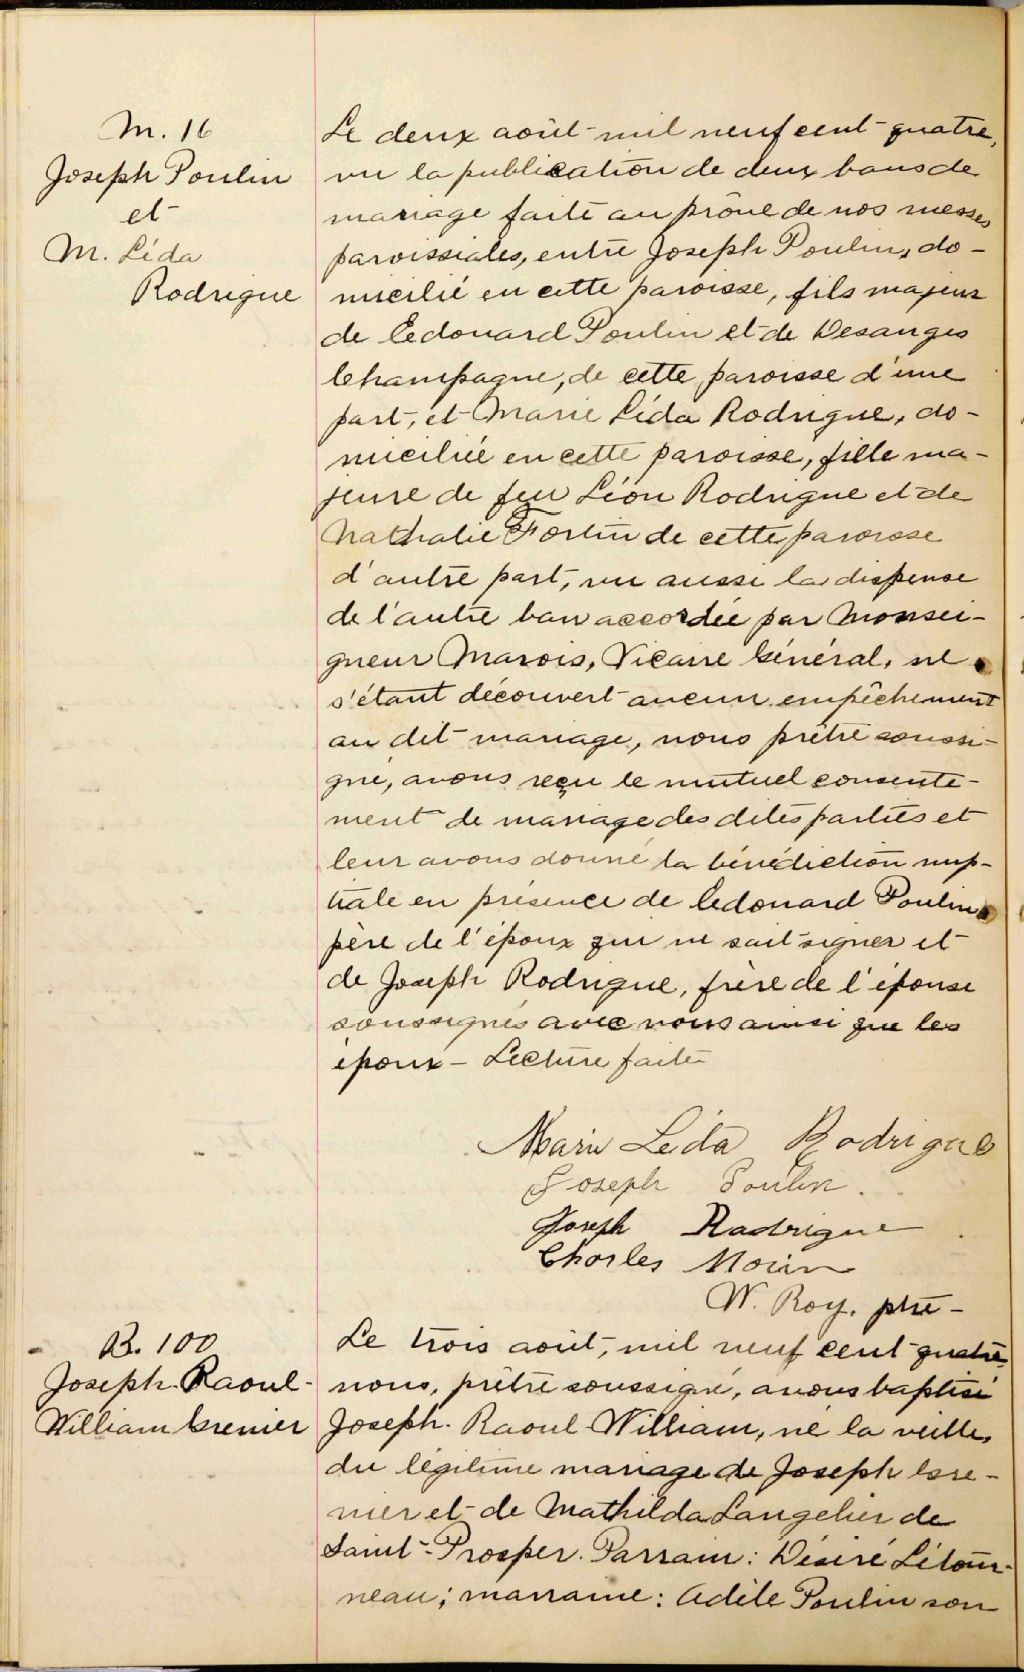 M. 16
Joseph Poulin
et
M. Léda
Rodrigue
Le deux août mil neuf cent quatre,
vu la publication de deux bans de
mariage faite au prône de nos messes
paroissiales, entre Joseph Poulin, do-
micilié en cette paroisse, fils majeur
de Edouard Poulin et de Desanges
Champagne, de cette paroisse d'une
part, et Marie Léda Rodrigue, do-
miciliée en cette paroisse, fille ma-
jeure de feu Léon Rodrigue et de
Nathalie Fortin de cette paroisse
d'autre part, vu aussi la dispense
de l'autre ban accordée par Monsei-
gneur Marois, Vicaire Général, ne
s'étant découvert aucun empêchement
au dit mariage, nous prêtre soussi-
gné, avons reçu le mutuel consente-
ment de mariage des dites parties et
leur avons donné la bénédiction nup-
tiale en présence de Edouard Poulin
père de l'époux qui ne sait signer et
de Joseph Rodrigue, frère de l'épouse
soussignés avec nous ainsi que les
époux - Lecture faite
Marie Leda Rodrigue
Joseph Poulin
Joseph Radrigue
Charles Morin
W. Roy. ptre -
B. 100
Joseph-Raoul-
William Grenier
Le trois août, mil neuf cent quatre
nous, prêtre soussigné, avons baptisé
Joseph-Raoul-William, né la veille,
du légitime mariage de Joseph Gre-
nier et de Mathilda Langelier de
Saint-Prosper. Parrain: Désiré Létour-
neau; marraine: Adèle Poulin son